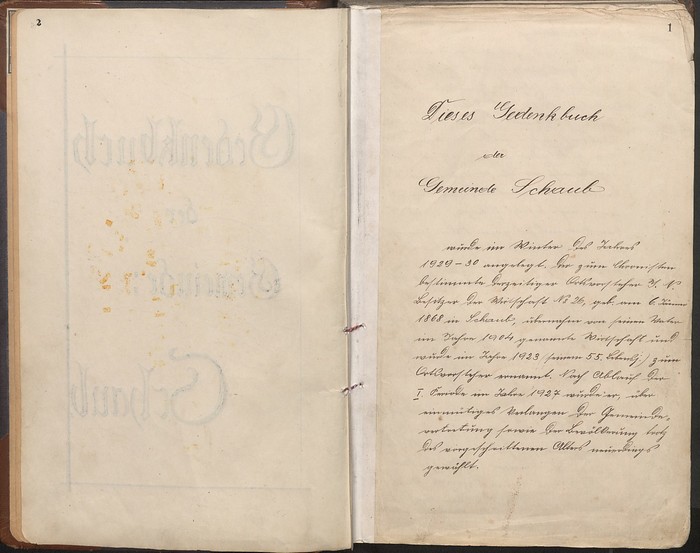 2
Gedenkbuch
der
Gemeinde
Schaub
1
Dieses Gedenkbuch
der
Gemeinde Schaub
wurde im Winter des Jahres
1929-30 angelegt. Der zum Chronisten
bestimmte derzeitiger Ortsvorsteher J. N.
Besitzer der Wirtschaft No 26, geb. am 6. Jänner
1868 in Schaub, übernahm von seinem Vater
im Jahre 1904 genannte Wirtschaft und
wurde im Jahre 1923 (seinem 55. Lebensj.) zum
Ortsvorsteher ernannt. Nach Ablauf der
I. Periode im Jahre 1927 wurde er, über
einmütiges Verlangen der Gemeinde-
vertretung sowie der Bevölkerung trotz
des vorgeschrittenen Alters neuerdings
gewählt.